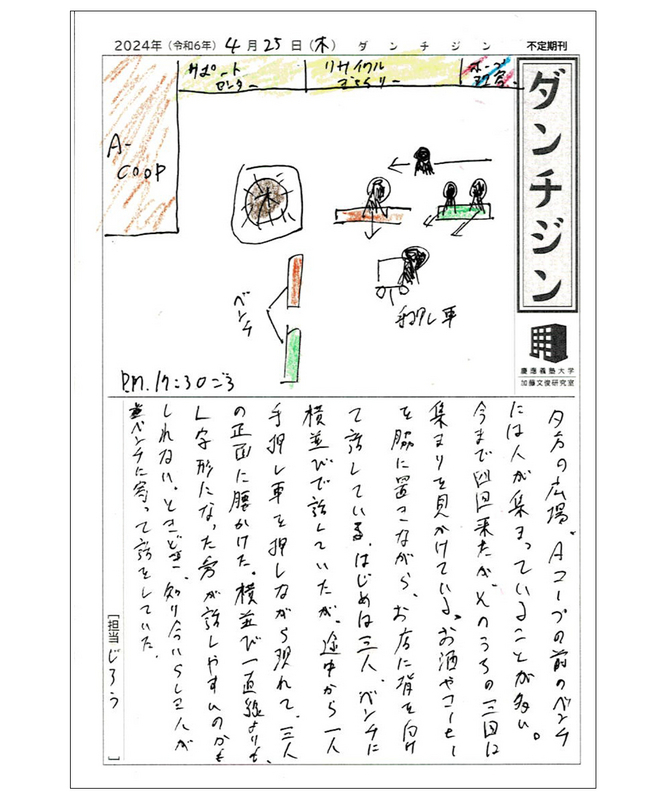 2024年(令和6年) 4月25日(木) ダンチジン 不定期刊
サポート
センター
リサイクル
A-
COOP
木
ベンチ
手押し車
P.M.17:30ごろ
ダンチジン
慶應義塾大学
加藤文俊研究室
夕方の広場、Aコープの前のベンチ
には人が集まっていることが多い。
今まで四回来たが、そのうちの三回は
集まりを見かけている。お酒やコーヒー
を脇に置きながら、お店に背を向け
て話している。はじめは三人、ベンチに
横並びで話していたが、途中から一人
手押し車を押しながら現れて、三人
の正面に腰かけた。横並び一直線よりも、
L字形になった方が話しやすいのかも
しれない。ときどき、知り合いらしき人が
ベンチに寄って話をしていた。
[担当 じろう ]